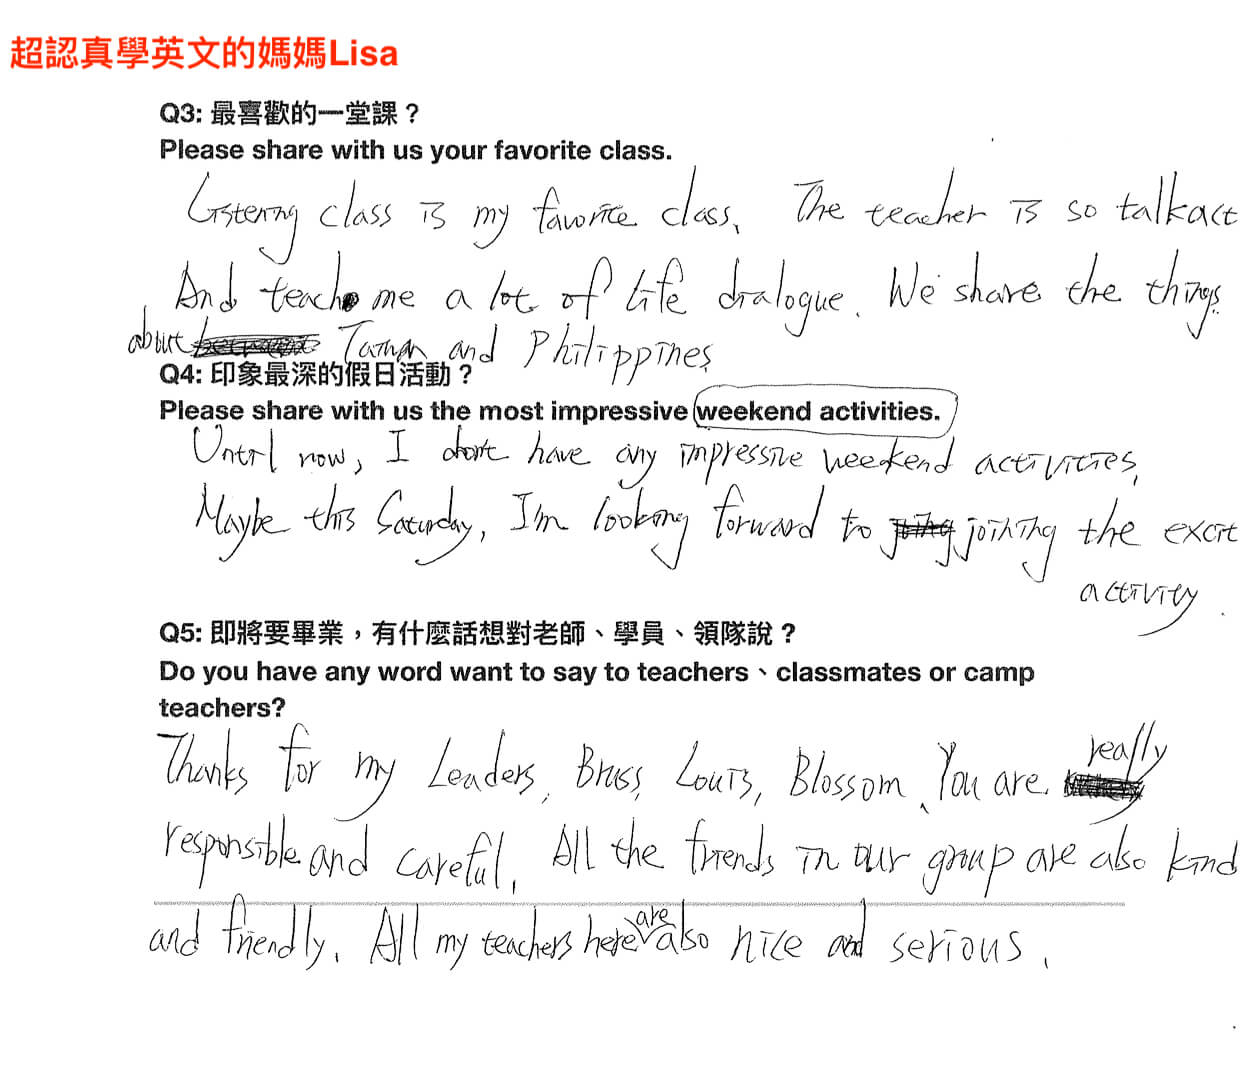 超認真學英文的媽媽Lisa
Q3: 最喜歡的一堂課？
Please share with us your favorite class.
Listening class is my favorite class. The teacher is so talkact
And teach me a lot of life dialogue. We share the things
about Taiwan and Philippines.
Q4: 印象最深的假日活動？
Please share with us the most impressive weekend activities.
Until now, I don't have any impressive weekend activities,
Maybe this Saturday, I'm looking forward to joining the excit
activity.
Q5: 即將要畢業，有什麼話想對老師、學員、領隊說？
Do you have any word want to say to teachers、classmates or camp
teachers?
Thanks for my Leaders, Louis, Blossom. You are really
responsible and careful. All the friends in our group are also kind
and friendly. All my teachers here are also nice and serious.